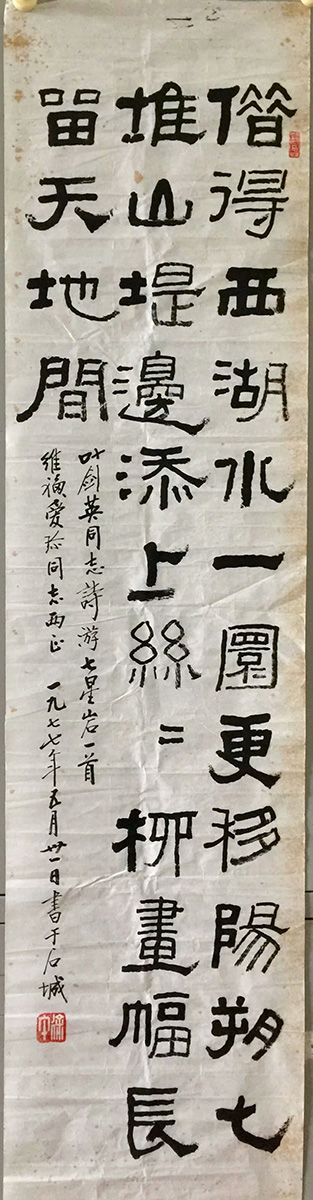 偺得西湖水一圜更移陽朔七
堆山堤邊添上絲〻柳畫幅長
留天地間
叶劍英同志詩游七星岩一首
維福愛珍同志两正 一九七七年五月卅一日書于石城